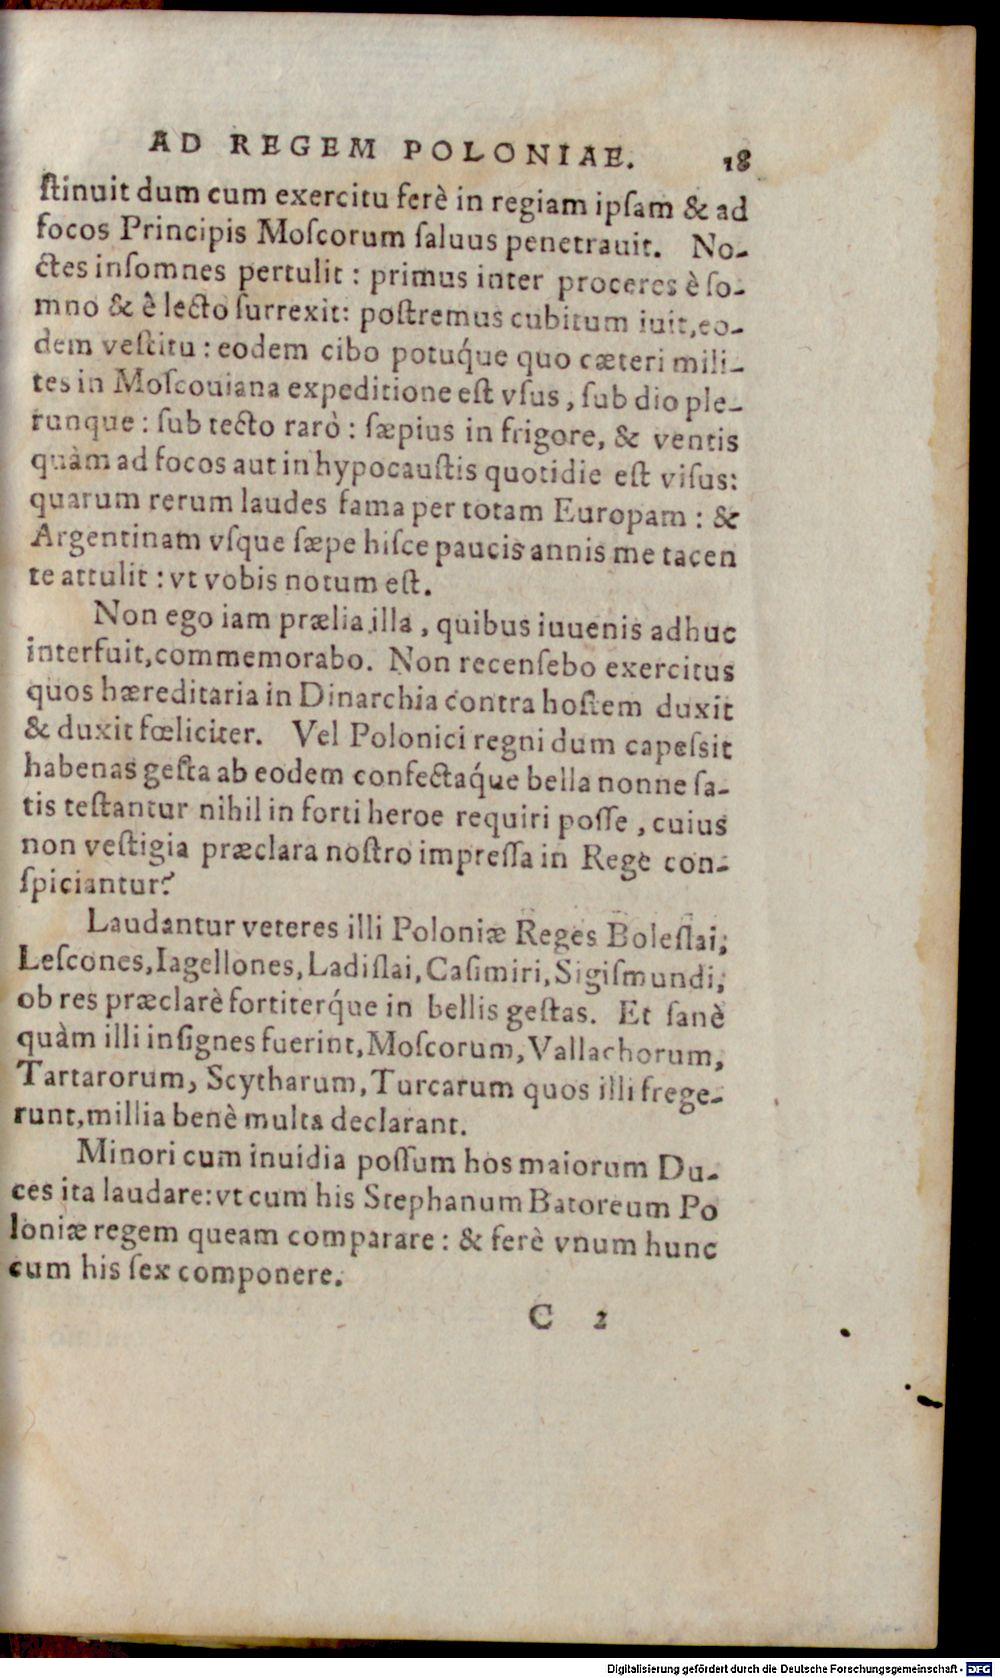 AD REGEM POLONIAE. 18
ſtinuit dum cum exercitu ferè in regiam ipſam & ad
focos Principis Moſcorum ſaluus penetrauit. No-
ctes inſomnes pertulit : primus inter proceres è ſo-
mno & è lecto ſurrexit: poſtremus cubitum iuit,eo-
dem veſtitu : eodem cibo potuq́ue quo cæteri mili-
tes in Moſcouiana expeditione eſt vſus, ſub dio ple-
runque : ſub tecto rarò : ſæpius in frigore, & ventis
quàm ad focos aut in hypocauſtis quotidie eſt viſus:
quarum rerum laudes fama per totam Europam : &
Argentinam vſque ſæpe hiſce paucis annis me tacen
te attulit : vt vobis notum eſt.
Non ego iam prælia illa, quibus iuuenis adhuc
interfuit,commemorabo. Non recenſebo exercitus
quos hæreditaria in Dinarchia contra hoſtem duxit
& duxit fœliciter. Vel Polonici regni dum capeſsit
habenas geſta ab eodem confectaq́ue bella nonne ſa-
tis teſtantur nihil in forti heroe requiri poſſe, cuius
non veſtigia præclara noſtro impreſſa in Rege con-
ſpiciantur?
Laudantur veteres illi Poloniæ Reges Boleſlai,
Leſcones,Iagellones,Ladiſlai,Caſimiri,Sigiſmundi,
ob res præclarè fortiterq́ue in bellis geſtas. Et ſanè
quàm illi inſignes fuerint,Moſcorum,Vallachorum,
Tartarorum, Scytharum,Turcarum quos illi frege-
runt,millia benè multa declarant.
Minori cum inuidia poſſum hos maiorum Du-
ces ita laudare:vt cum his Stephanum Batoreum Po
loniæ regem queam comparare : & ferè vnum hunc
cum his ſex componere.
C 2
Digitalisierung gefördert durch die Deutsche Forschungsgemeinschaft - DFG